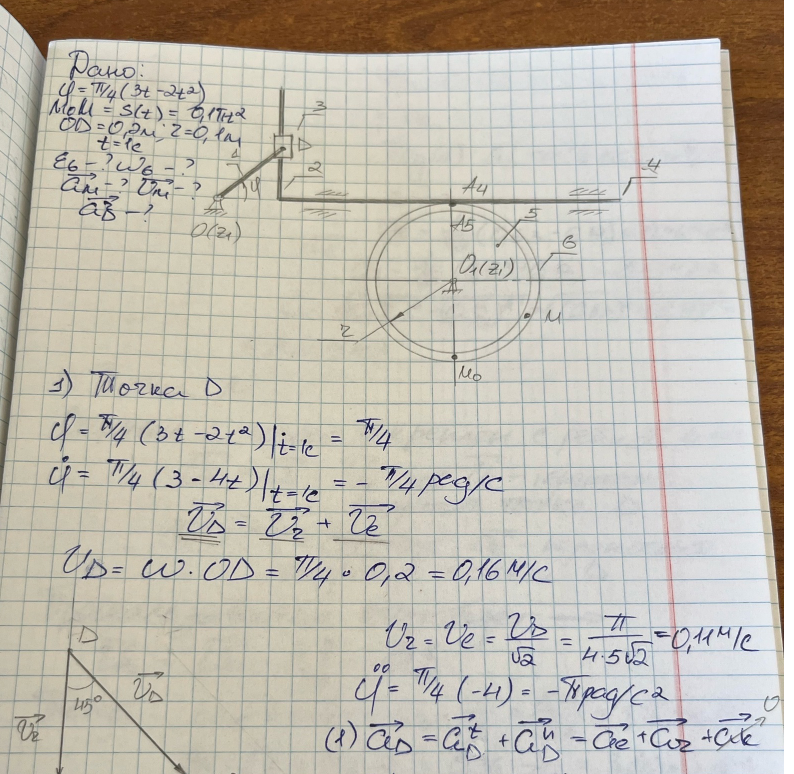 Дано:
φ = π/4 (3t - 2t²)
M₀M = S(t) = 0,1πt²
OD = 0,2м; r = 0,1м
t = 1c
ε₆ - ? ω₆ - ?
a⃗м - ? v⃗м - ?
a⃗в - ?
3
D
2
φ
O(z₁)
4
A₄
A₅
5
6
O₁(z₁)
M
r
M₀
1) Точка D
φ = π/4 (3t - 2t²)|t=1c = π/4
φ̇ = π/4 (3 - 4t)|t=1c = - π/4 рад/с
v⃗D = v⃗r + v⃗e
vD = ω · OD = π/4 · 0,2 = 0,16 м/с
vr = ve = vD/√2 = π/(4·5√2) = 0,11 м/с
φ̈ = π/4 (-4) = -π рад/с²
(1) a⃗D = a⃗Dᵗ + a⃗Dⁿ = a⃗e + a⃗r + a⃗k 0
D
45°
v⃗D
v⃗r